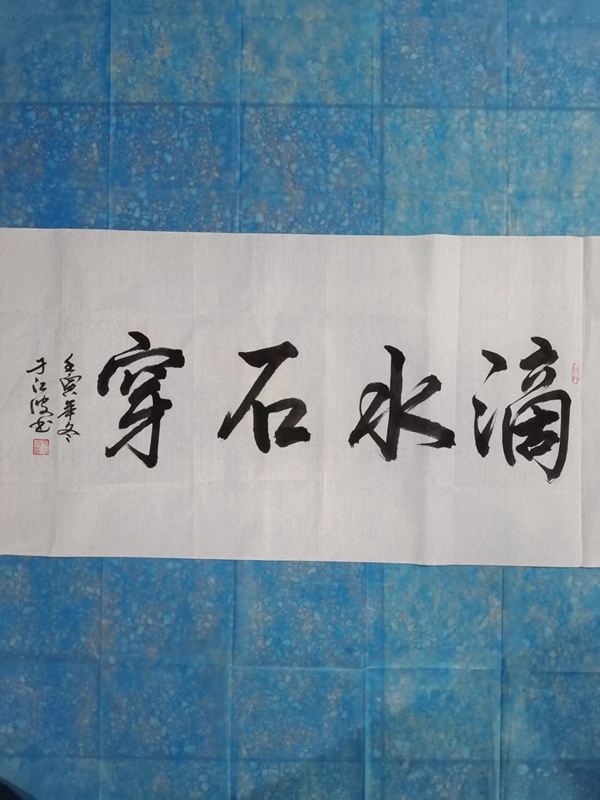 滴水石穿
壬寅年冬
于江波书